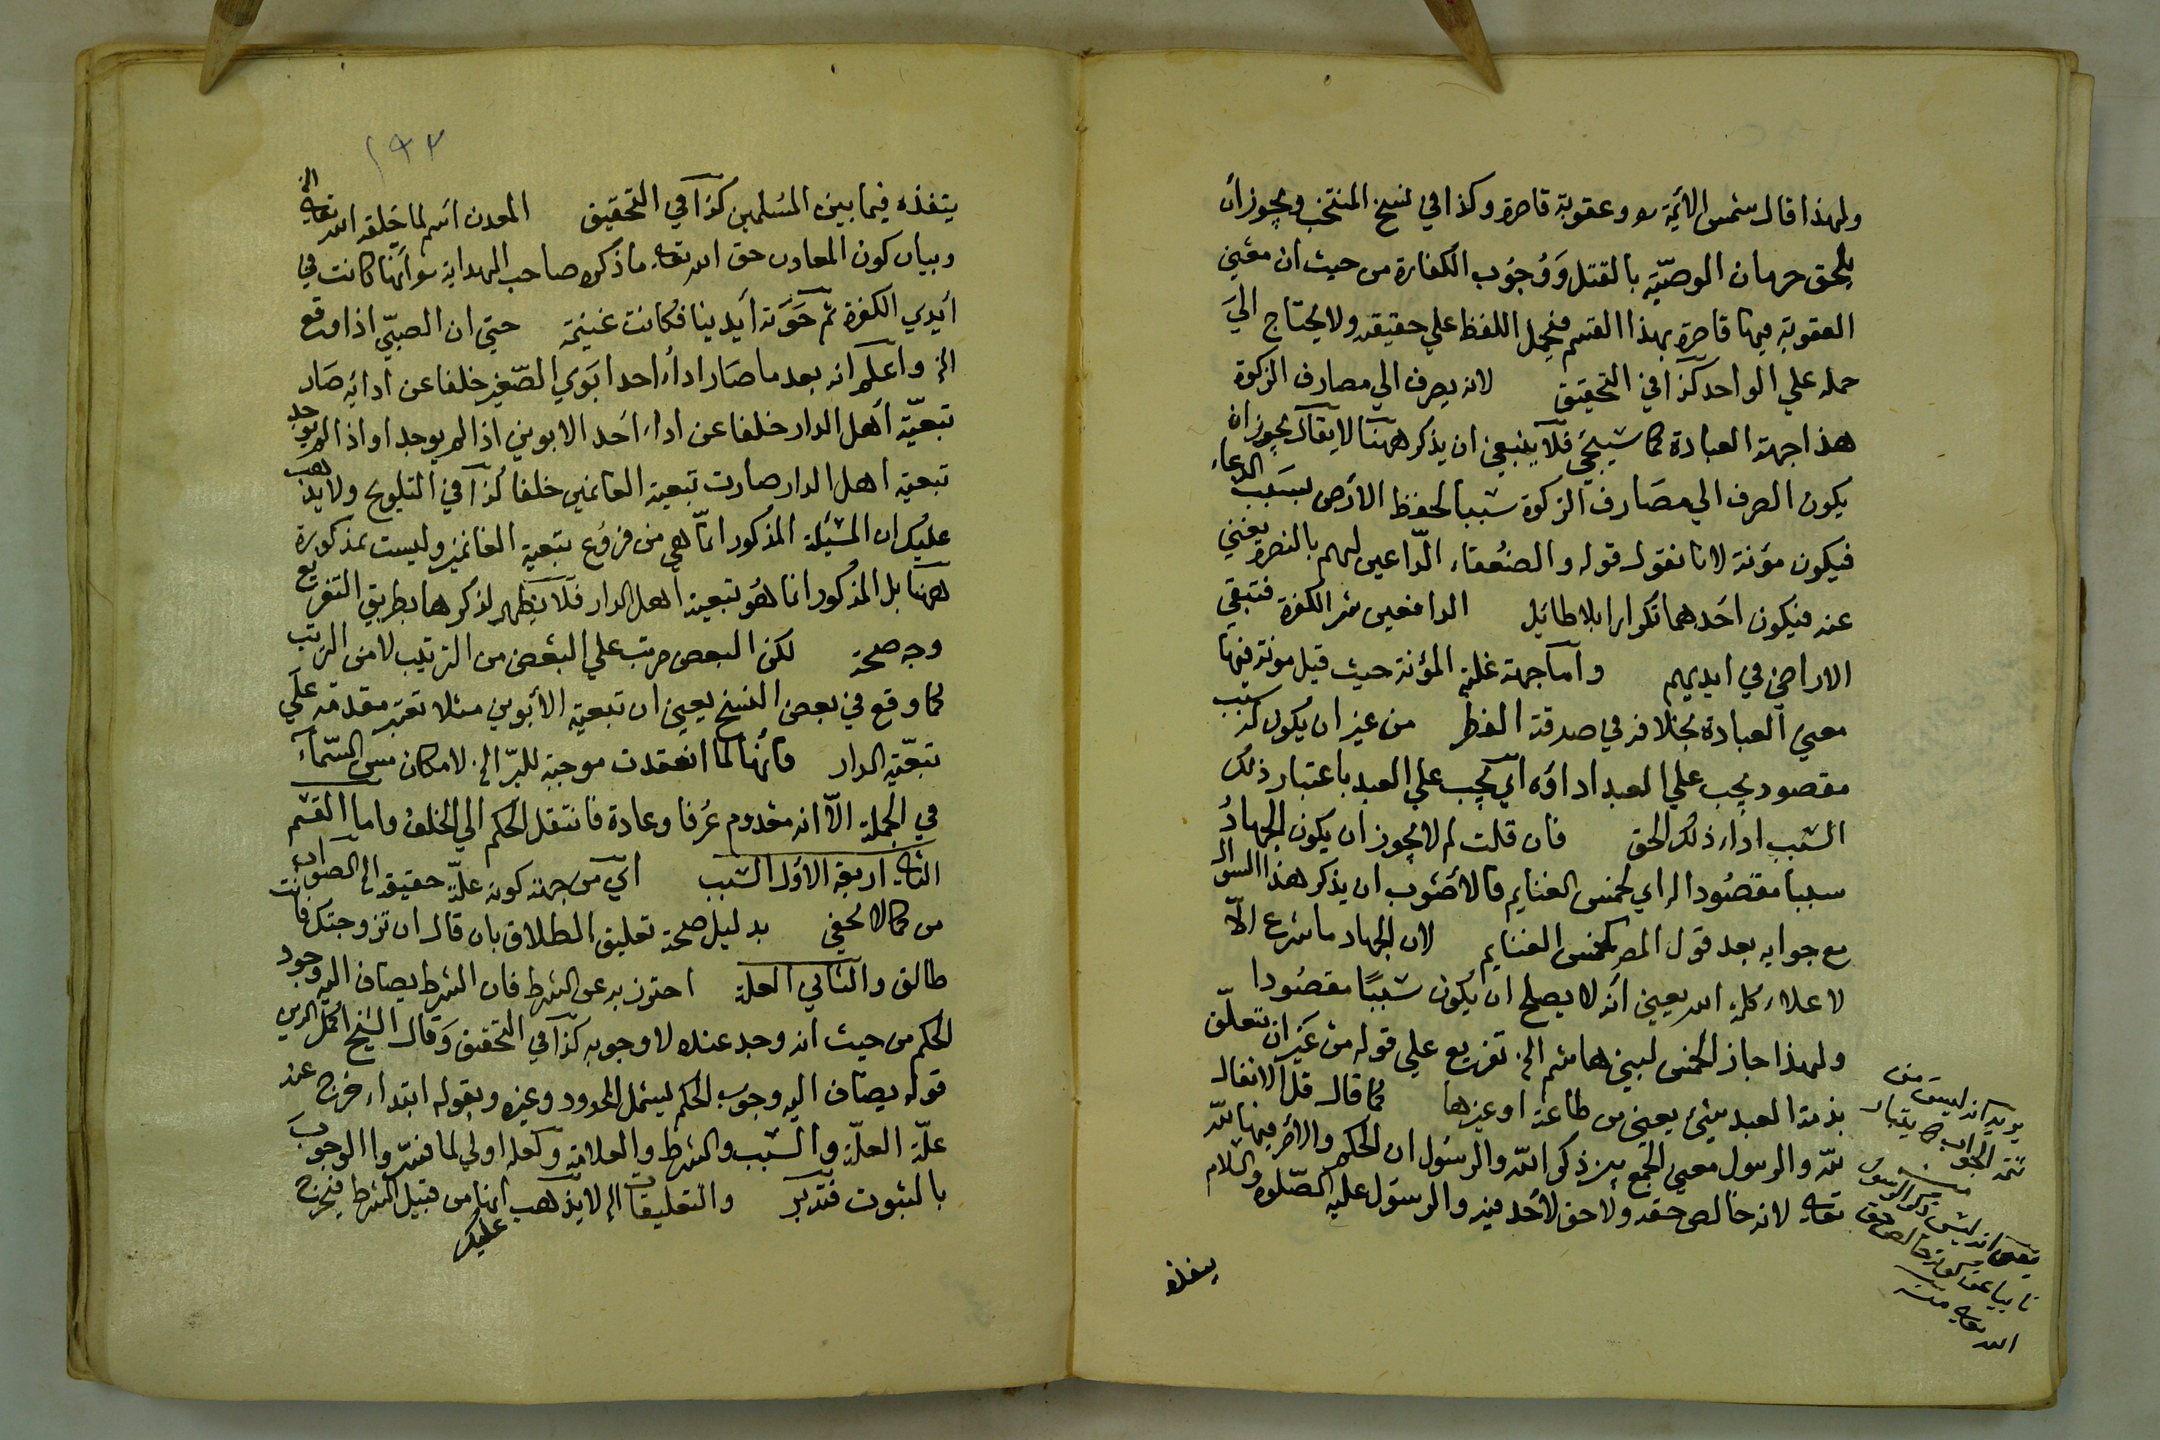 ولهذا قال شمس الائمة وعقوبة قاصرة وكذا في نسخ المنتخب ويجوز ان
يلحق حرمان الوصية بالقتل ووجوب الكفارة من حيث ان معنى
العقوبة فيها قاصرة بهذا القسم فيحمل اللفظ علي حقيقته ولا يحتاج الي
حمله علي الواحد كذا في التحقيق لانه يصرف الي مصارف الزكوة
هذا جهة العبادة كما سيجئ فلا ينبغي ان يذكر ههنا لا يقال يجوز ان
يكون الصرف الي مصارف الزكوة سببا لحفظ الارض بسبب الدعاء
فيكون مؤنة لانا نقول قوله والضعفاء الداعين لهم بالنصرة يغني
عنه فيكون احدهما تكرارا بلا طائل الدافعين شر الكفرة فتبقي
الاراضي في ايديهم واما جهة غلبة المؤنة حيث قيل مونة فيها
معني العبادة بخلافه في صدقة الفطر من غير ان يكون له سبب
مقصود يجب علي العبد اداؤه اي يجب علي العبد باعتبار ذلك
السبب اداء ذلك الحق فان قلت لم لا يجوز ان يكون الجهاد
سببا مقصودا الخ اي لخمس الغنايم فالاصوب ان يذكر هذا السؤال
مع جوابه بعد قول المص كخمس الغنايم لان الجهاد ما شرع الا
لاعلاء كلمة الله يعني انه لا يصلح ان يكون سببا مقصودا
ولهذا جاز الخمس لبني هاشم الخ تفريع علي قوله من غير ان تتعلق
بذمة العبد شئ يعني من طاعة او غيرها كما قال قل الانفال
لله والرسول معني الجمع بين ذكر الله والرسول ان الحكم والامر فيها لله
تعالى لانه خالص حقه ولا حق لاحد فيه والرسول عليه الصلوة والسلام
ينفذه
١٩٢
ينفذه فيما بين المسلمين كذا في التحقيق المعدن اسم لما خلقه الله تعالى الخ
وبيان كون المعادن حق الله تعالى ما ذكره صاحب الهداية وانها كانت في
ايدي الكفرة ثم حوته ايدينا فكانت غنيمة حتي ان الصبي اذا وقع
الخ واعلم انه بعد ما صار اداء احد ابوي الصغير خلفا عن ادائه صار
تبعية اهل الدار خلفا عن اداء احد الابوين اذا لم يوجد او اذا لم يوجد
تبعية اهل الدار صارت تبعية الغانمين خلفا كذا في التلويح ولا يذهب
عليك ان المسئلة المذكور انما هي من فروع تبعية الغانمين وليست بمذكورة
ههنا بل المذكور انما هو تبعية اهل الدار فلا يظهر لذكرها بطريق التفريع
وجه صحة لكن البعض مرتب علي البعض من الترتيب لا من الرتب
كما وقع في بعض النسخ يعني ان تبعية الابوين مثلا تعتبر مقدمة علي
تبعية الدار فانها لما انعقدت موجبة للبر الخ لامكان مس السماء
في الجملة الا انه معدوم عرفا وعادة فانتقل الحكم الي الخلف واما القسم
الثاني اربعة الاول السبب اي من جهة كونه علة حقيقة الخ الصواب
من كما لا يخفي بدليل صحة تعليق الطلاق بان قال ان تزوجتك فانت
طالق والثاني العلة احترز به عن الشرط فان الشرط يضاف اليه وجود
الحكم من حيث انه وجد عنده لا وجوبه كذا في التحقيق وقال الشيخ اكمل الدين
قوله يضاف اليه وجوب الحكم ليشمل المحدود وغيره وبقوله ابتداء خرج عنه
علة العلة والسبب والشرط والعلامة وكعله اولي لما فسروا الوجوب
بالثبوت فتدبر والتعليقات الخ لا يذهب انها من قبيل الشرط فيخرج
عليك